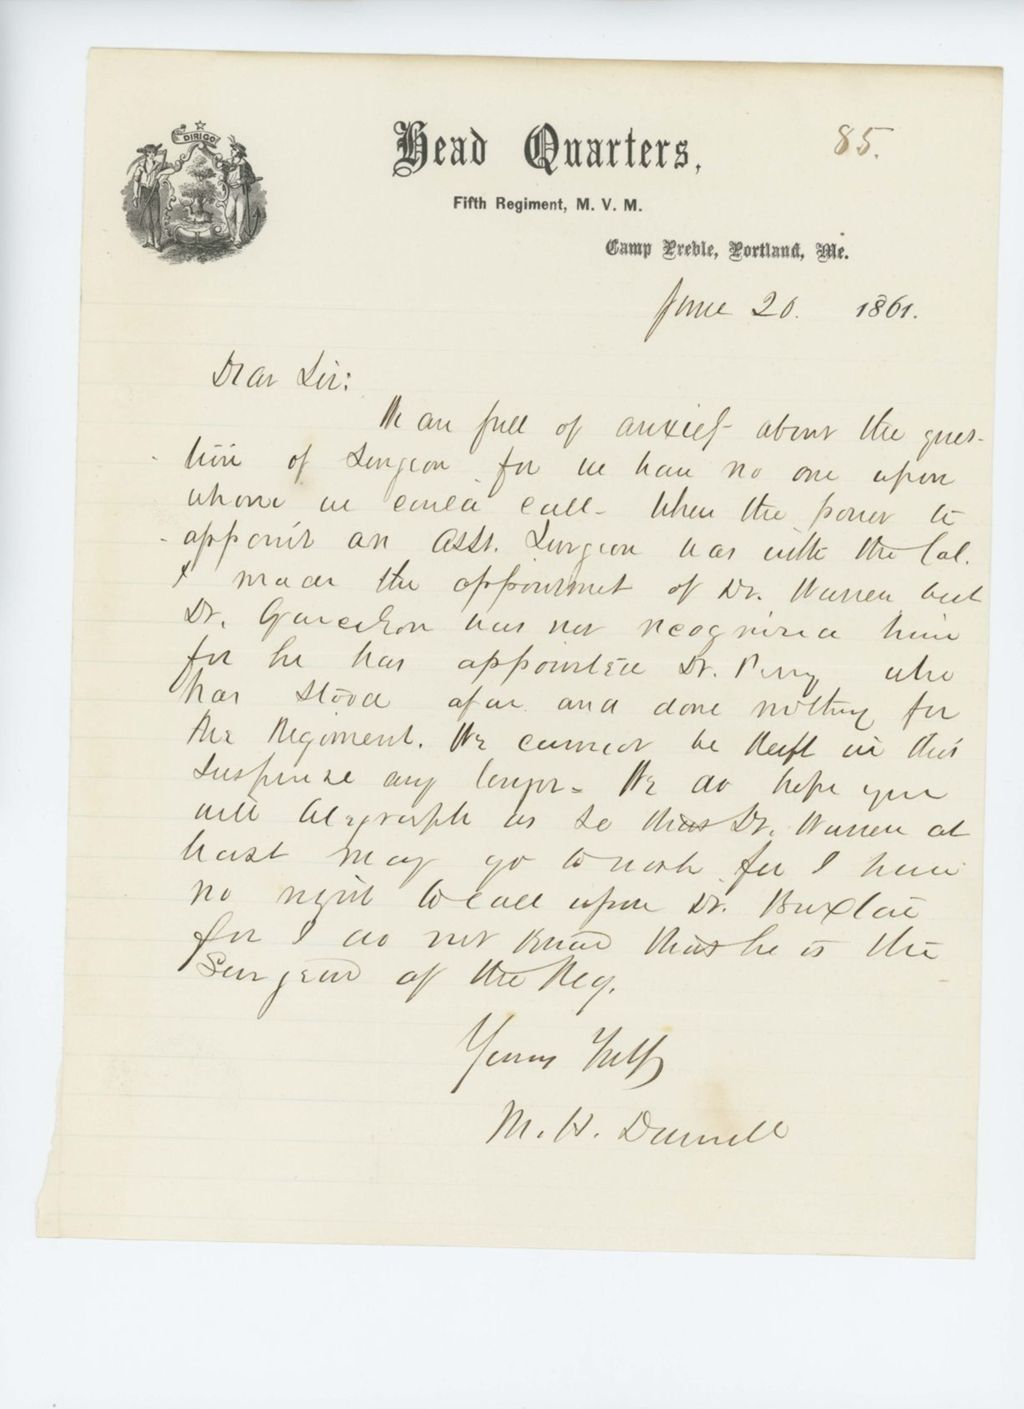 DIRIGO
Head Quarters,
85.
Fifth Regiment, M. V. M.
Camp Preble, Portland, Me.
June 20. 1861.
Dear Sir:
We are full of anxiety about the ques-
tion of Surgeon for we have no one upon
whom we could call - When the power to
appoint an Asst. Surgeon was with the Col.
I made the appointment of Dr. Warren but
Dr. Garcelon has not recognized him
for he has appointed Dr. Perry who
has stood afar and done nothing for
the Regiment. We cannot be kept in this
suspense any longer - We do hope you
will telegraph us so that Dr. Warren at
least may go to work for I have
no right to call upon Dr. Buxton
for I do not know that he is the
Surgeon of the Reg.
Yours Truly
M. H. Dunnell